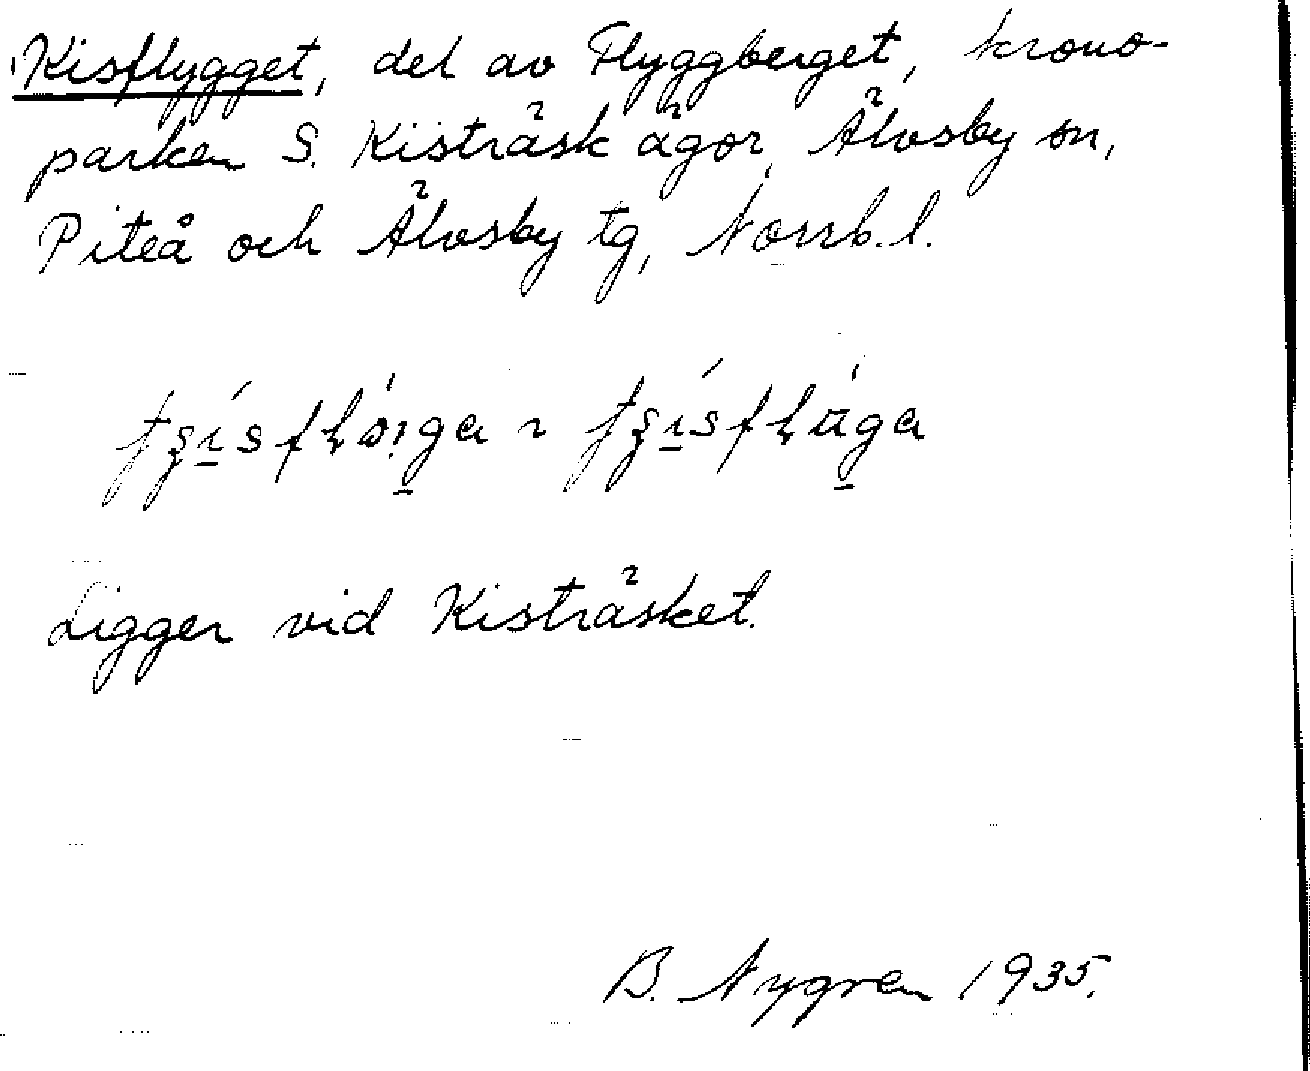 Kisflygget, del av Flyggberget, krono-
parken S. Kisträsk ägor, Älvsby sn,
Piteå och Älvsby tg, Norrb. l.
Ligger vid Kisträsket.
B. Nygren 1935.